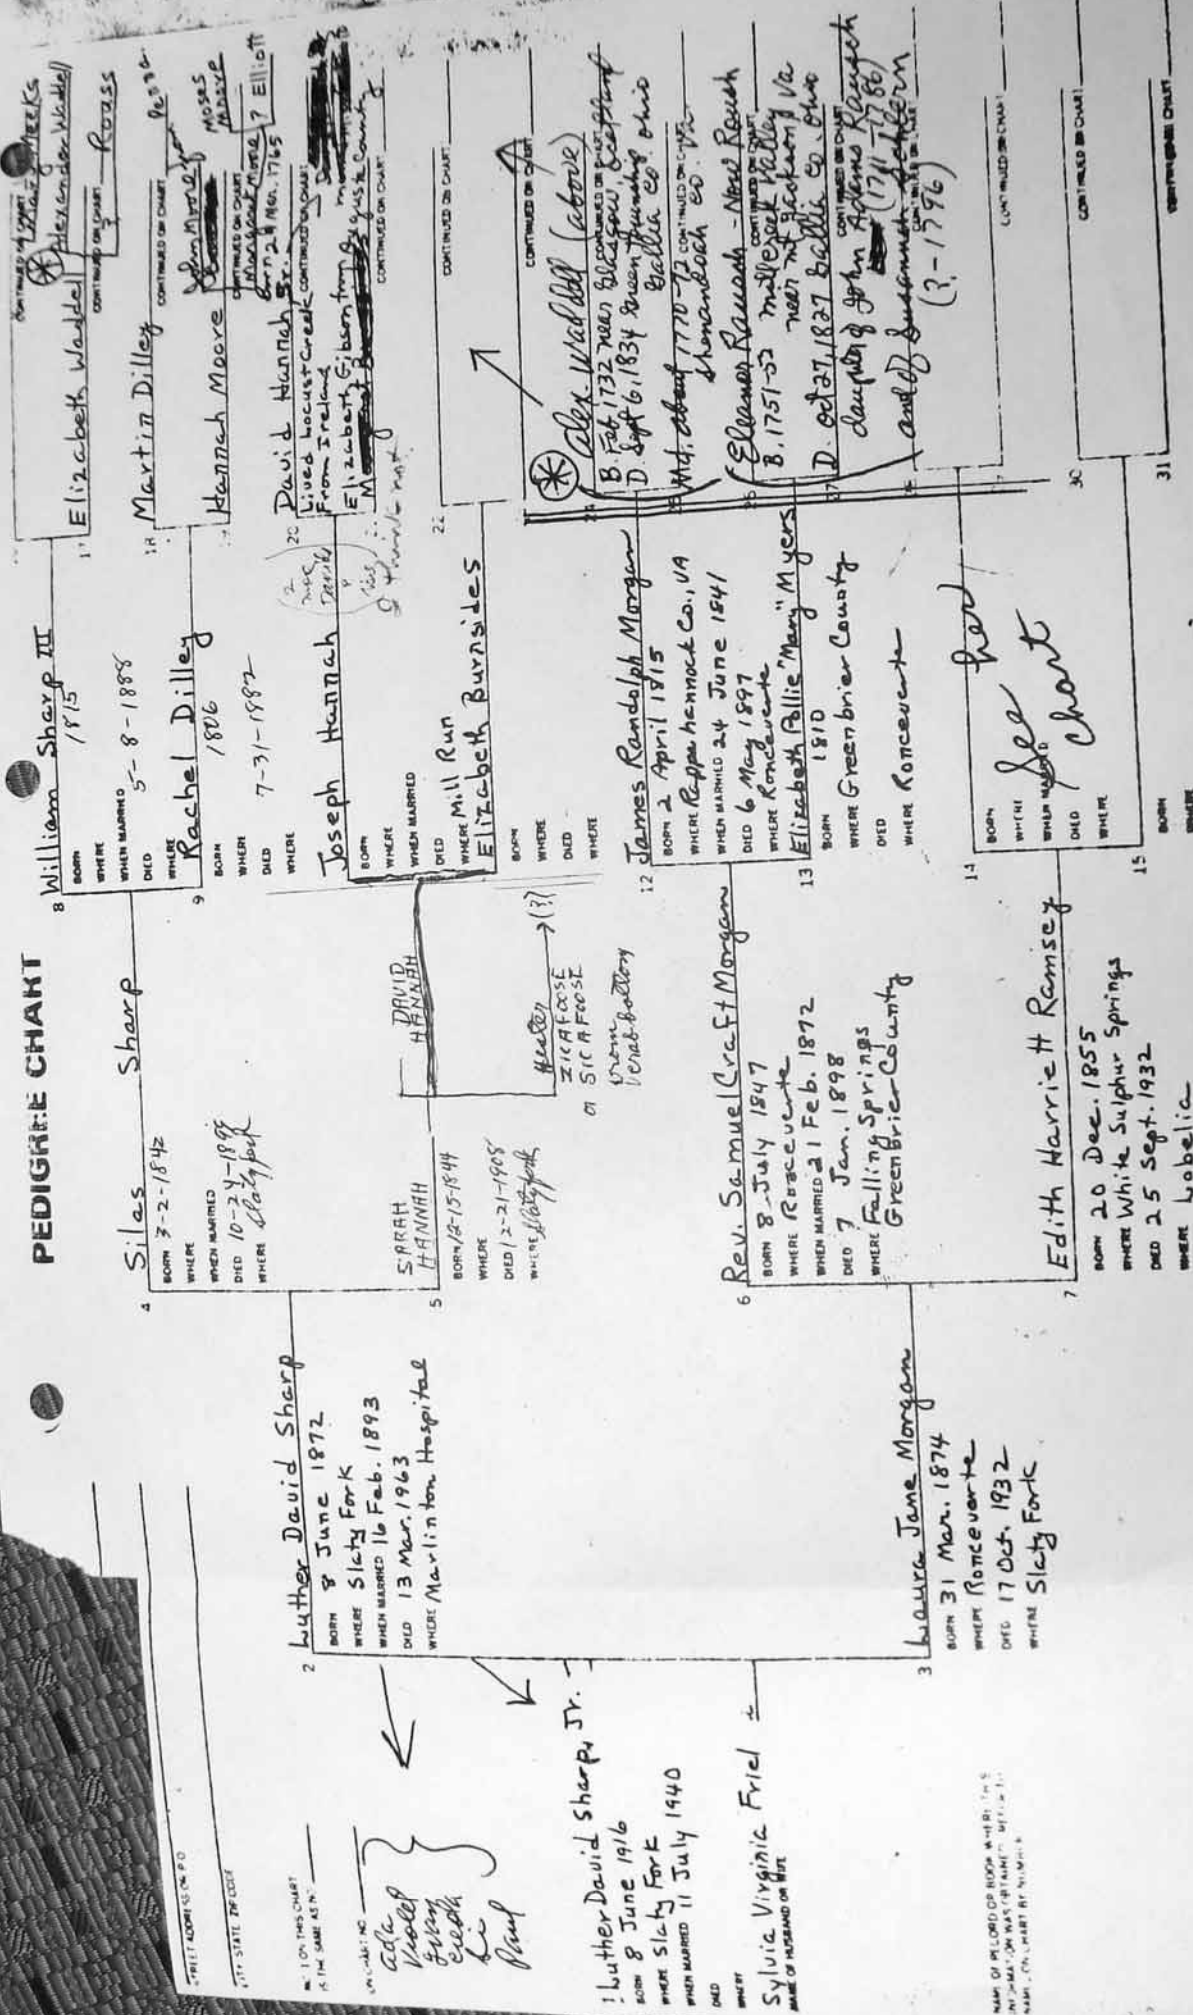 PEDIGREE CHART
STREET ADDRESS OR PO
CITY STATE ZIP CODE
NO 1 ON THIS CHART
IS THE SAME AS NO
ON CHART NO
Ada
Violet
Creola
Si
Paul
1 Luther David Sharp, Jr.
BORN 8 June 1916
WHERE Slaty Fork
WHEN MARRIED 11 July 1940
DIED
WHERE
Sylvia Virginia Friel
NAME OF HUSBAND OR WIFE
NAME OF RECORD OR BOOK WHERE THIS
2 Luther David Sharp
BORN 8 June 1872
WHERE Slaty Fork
WHEN MARRIED 16 Feb. 1893
DIED 13 Mar. 1963
WHERE Marlinton Hospital
3 Laura Jane Morgan
BORN 31 Mar. 1874
WHERE Ronceverte
DIED 17 Oct. 1932
WHERE Slaty Fork
4 Silas Sharp
BORN 3-2-1842
WHERE
WHEN MARRIED
DIED 10-24-1895
WHERE Slaty fork
5 SARAH
HANNAH
BORN 12-15-1844
WHERE
DIED 12-21-1905
WHERE Slaty fork
DAVID
HANNAH
Hester (?)
ZICAFOOSE
or SICAFOOSE
from
Verabottom
6 Rev. Samuel Craft Morgan
BORN 8 July 1847
WHERE Ronceverte
WHEN MARRIED 21 Feb. 1872
DIED 7 Jan. 1898
WHERE Falling Springs
Greenbrier County
7 Edith Harriett Ramsey
BORN 20 Dec. 1855
WHERE White Sulphur Springs
DIED 25 Sept. 1932
WHERE Lobelia
8 William Sharp III
BORN 1815
WHERE
WHEN MARRIED
DIED 5-8-1888
WHERE
9 Rachel Dilley
BORN 1806
WHERE
DIED 7-31-1882
WHERE
Joseph Hannah
BORN
WHERE
WHEN MARRIED
DIED
WHERE Mill Run
Elizabeth Burnsides
BORN
WHERE
DIED
WHERE
12 James Randolph Morgan
BORN 2 April 1815
WHERE Rappahannock Co., VA
WHEN MARRIED 24 June 1841
DIED 6 May 1897
WHERE Ronceverte
13 Elizabeth Pollie "Mary" Myers
BORN 1810
WHERE Greenbrier County
DIED
WHERE Ronceverte
14
BORN
WHERE
WHEN MARRIED
DIED
WHERE
See her
chart
15
BORN
WHERE
CONTINUED ON CHART
Mary Meeks
Alexander Waddell
17 Elizabeth Waddell
CONTINUED ON CHART
? Roass
18 Martin Dilley
CONTINUED ON CHART
Hannah Moore
John Moore
Moses
Moore
Margaret Moore
Born 29 Mar. 1765
? Elliott
20 David Hannah Sr.
CONTINUED ON CHART
Lived Locust Creek
From Ireland
Elizabeth Gibson from Augusta County
CONTINUED ON CHART
I think not
22
CONTINUED ON CHART
CONTINUED ON CHART
Alex. Waddell (above)
B. Feb 1732 near Glasgow, Scotland
D. Sept 6, 1834 Green Township
Gallia Co. Ohio
Md. about 1770-72
Shenandoah Co. Va
Eleanor Rausch - Now Roush
B. 1751-52 Millcreek Valley
near Mt Jackson, Va
D. Oct 27, 1827 Gallia Co. Ohio
daughter of John Adams Rausch
(1711-1786)
and of Susannah Sohlern
(?-1796)
CONTINUED ON CHART
30
CONTINUED ON CHART
31